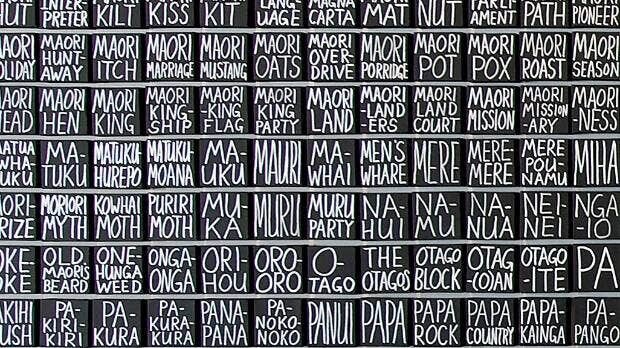 HUT
INTER-
PRETER
KILT
KISS
KIT
LANG-
UAGE
MAGNA
CARTA
MAT
NUT
PARLI-
AMENT
PATH
PIONEER
AORI
OLIDAY
MAORI
HUNT-
AWAY
MAORI
ITCH
MAORI
MARRIAGE
MAORI
MUSTANG
MAORI
OATS
MAORI
OVER-
DRIVE
MAORI
PORRIDGE
MAORI
POT
MAORI
POX
MAORI
ROAST
MAORI
SEASON
AORI
EAD
MAORI
HEN
MAORI
KING
MAORI
KING-
SHIP
MAORI
KING-
FLAG
MAORI
KING
PARTY
MAORI
LAND
MAORI
LAND-
ERS
MAORI
LAND
COURT
MAORI
MISSION
MAORI
MISSION-
ARY
MAORI
-NESS
ATUA
WHA-
AUKU
MA-
TUKU
MATUKU-
HUREPO
MATUKU-
MOANA
MA-
UKU
MAURI
MA-
WHAI
MEN'S
WHARE
MERE
MERE-
MERE
MERE
POU-
NAMU
MIHA
AORI-
RIZE
MORIORI
MYTH
KOWHAI
MOTH
PURIRI
MOTH
MU-
KA
MURU
MURU
PARTY
NA-
HUI
NA-
MU
NA-
NUA
NEI-
NEI
NGA-
IO
OKE-
OKE
OLD
MAORI'S
BEARD
ONE-
HUNGA
WEED
ONGA-
ONGA
ORI-
HOU
ORO-
ORO
O-
TAGO
THE
OTAGOS
OTAGO
BLOCK
OTAG-
(O)AN
OTAGO-
ITE
PA
AKIHI
USH
PA-
KIRI-
KIRI
PA-
KURA
PA-
KURA-
KURA
PANA-
PANA
PA-
NOKO-
NOKO
PANUI
PAPA
PAPA
ROCK
PAPA
COUNTRY
PAPA-
KAINGA
PA-
PANGO